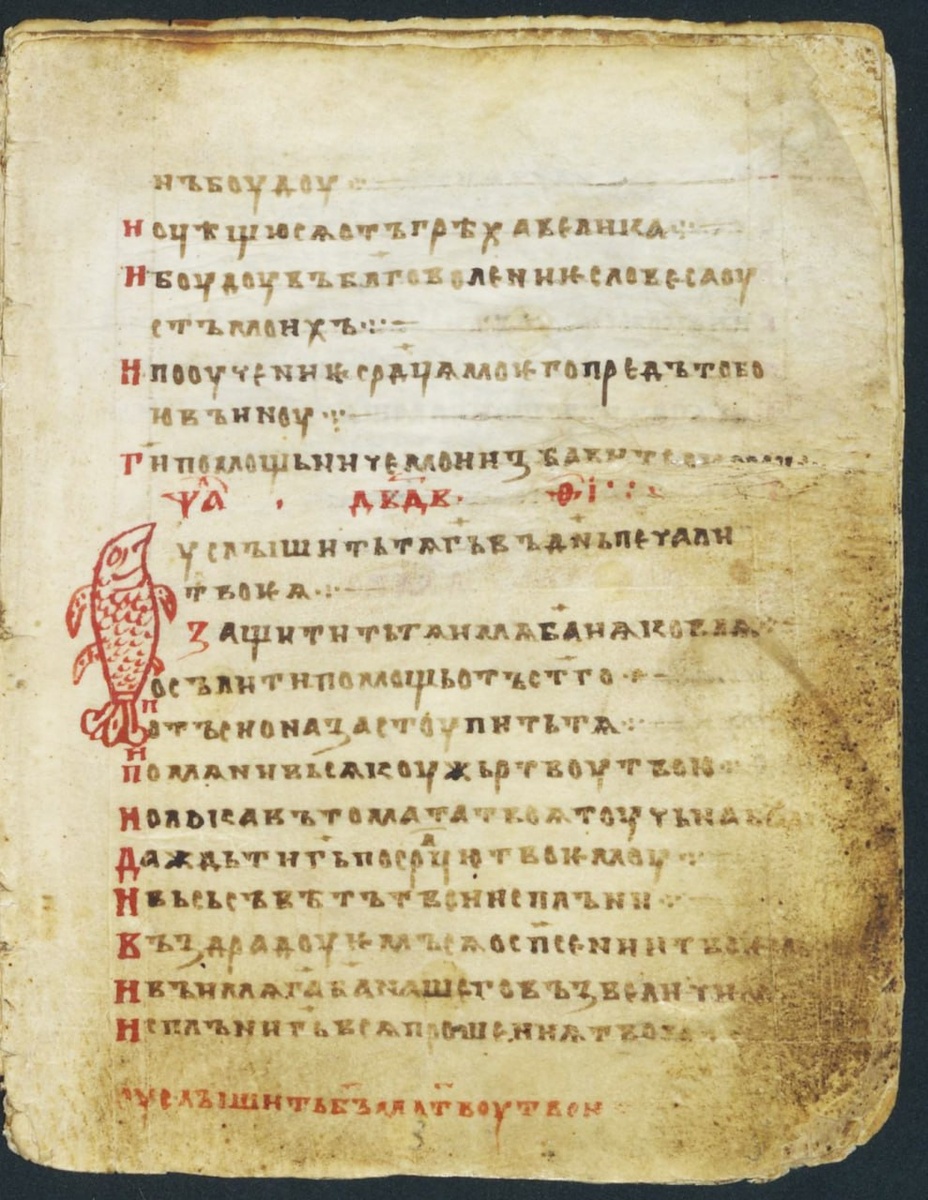 нъ боудоу
И оцѣщю сѧ отъ грѣха велика
И боудоу въ бл҃говолениѥ словеса оу
стъ моихъ
И пооучениѥ ср҃дца моѥго предъ тобо
ю въ иноу
Г҃и помощьниче мои и избавите
ѰА҃ дв҃дв ѳ҃і
услышить тѧ г҃ь въ дн҃ь печали
твоѥѧ
Защитить тѧ имѧ б҃а иѧковлѧ
осълить ти помощь отъ ст҃го
И отъ сиона застоупить тѧ
Помѧни вьсѧкоу жьртвоу твою
И олъкавътомата твоѧ тоучьна
Даждь ти г҃ь по ср҃дцю твоѥмоу
И вьсь съвѣтъ твои исплъни
Въздрадоуѥмъ сѧ о сп҃сении твоѥ
И въ имѧ г҃а б҃а нашего възвеличим
Исплънить г҃ь всѧ прошениѧ твоѧ
оуслышить б҃ъ мл҃твоу твои